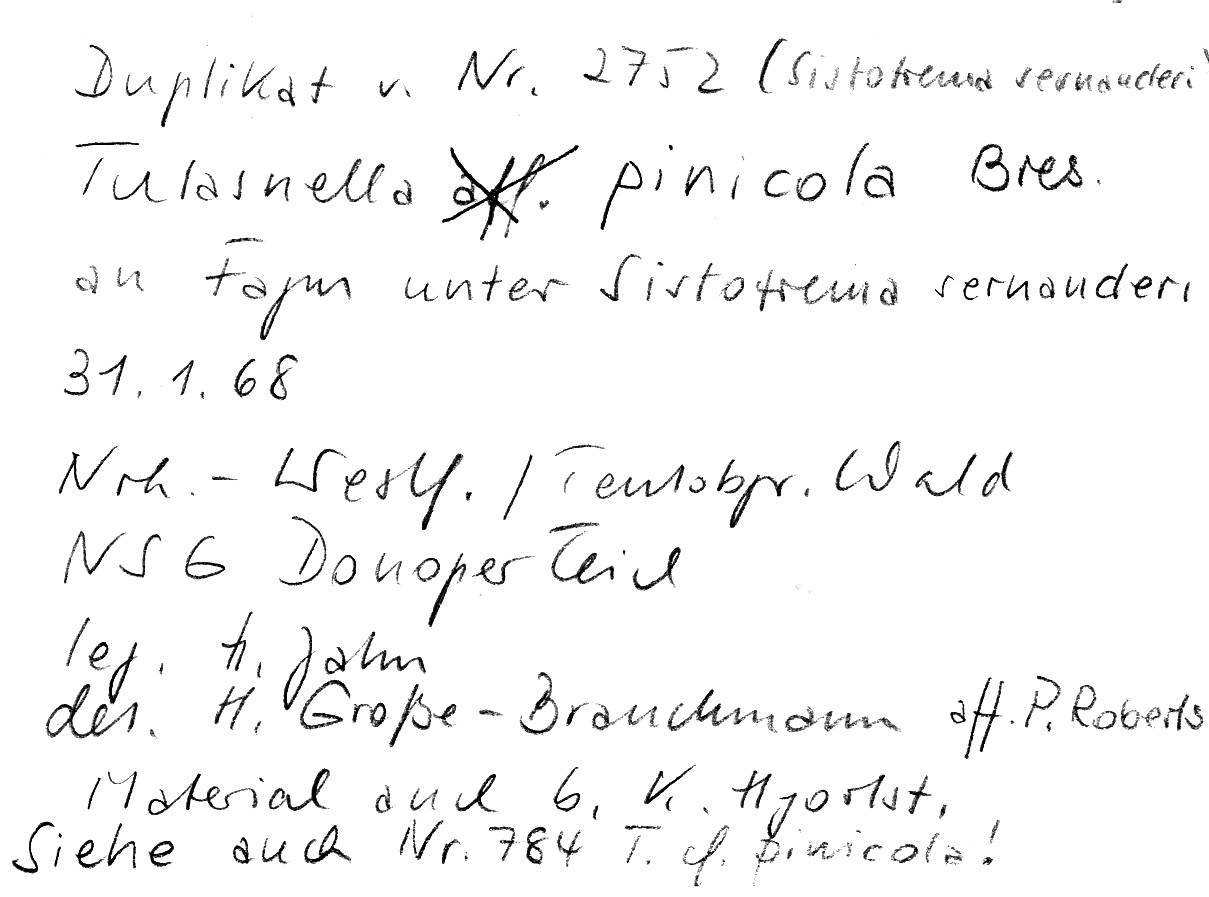 Duplikat v. Nr. 2752 (Sistotrema sernanderi)
Tulasnella aff. pinicola Bres.
an Fagus unter Sistotrema sernanderi
31.1.68
Nrh.-Westf. / Teutobgr. Wald
NSG Donoper Teich
leg. H. Jahn
det. H. Große-Brauckmann aff. P. Roberts
Material auch b. K. Hjortst.
Siehe auch Nr. 784 T. cf. pinicola!